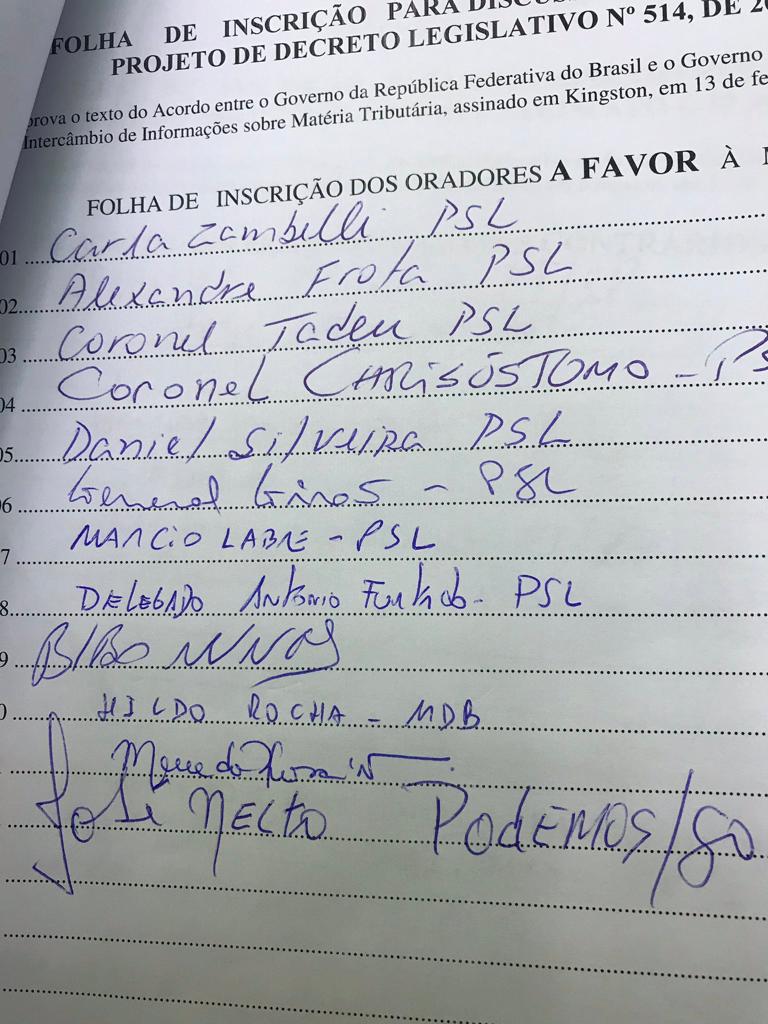 FOLHA DE INSCRIÇÃO PARA DISCUS
PROJETO DE DECRETO LEGISLATIVO Nº 514, DE 20
prova o texto do Acordo entre o Governo da República Federativa do Brasil e o Governo
Intercâmbio de Informações sobre Matéria Tributária, assinado em Kingston, em 13 de fe
FOLHA DE INSCRIÇÃO DOS ORADORES A FAVOR À
01 Carla Zambelli PSL
02 Alexandre Frota PSL
03 Coronel Tadeu PSL
04 Coronel CHRISÓSTOMO - PS
05 Daniel Silveira PSL
6 General Girão - PSL
7 MARCIO LABRE - PSL
8 DELEGADO Antonio Furtado - PSL
9 BIBO NUNES
0 HILDO ROCHA - MDB
José NELTO PODEMOS/GO